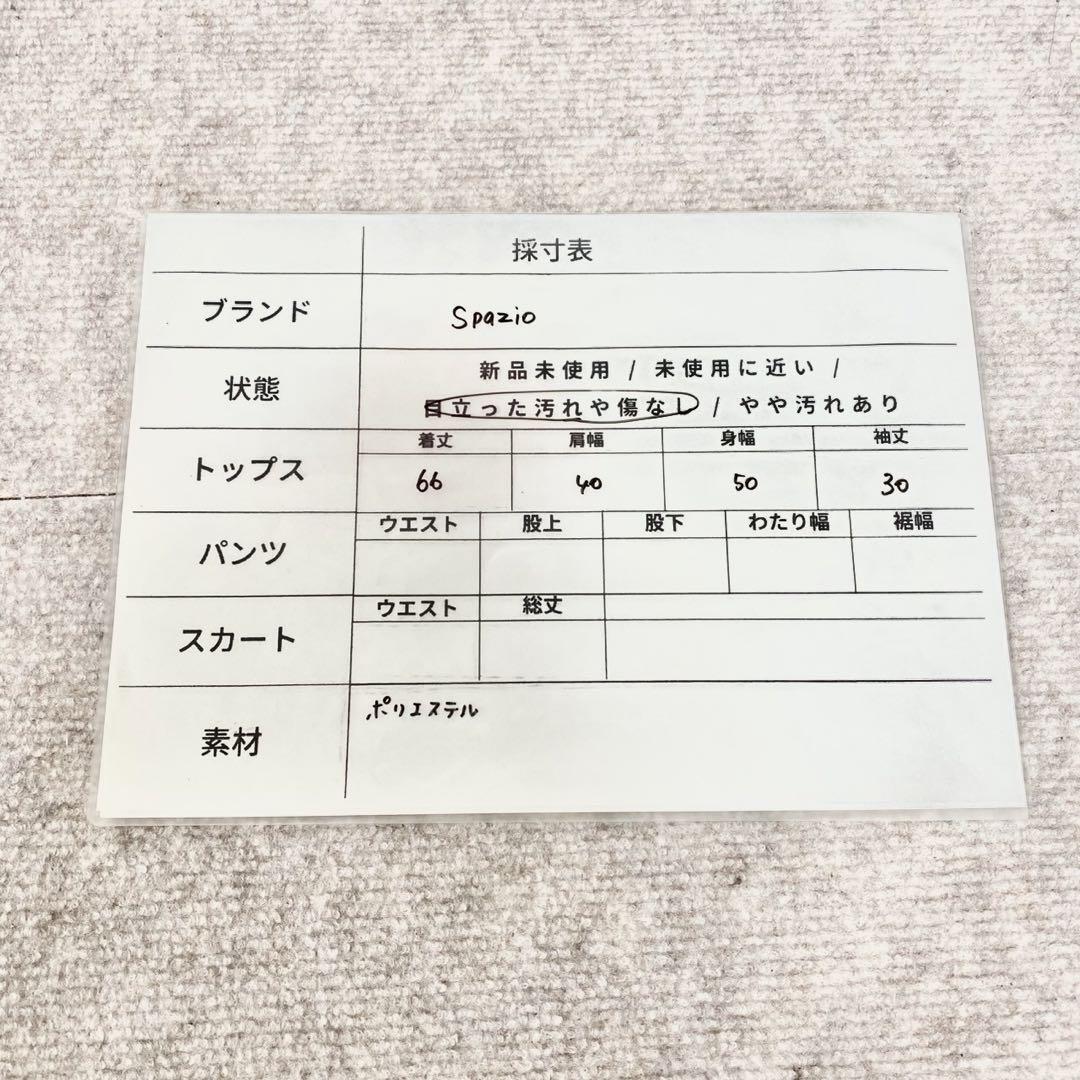 採寸表
ブランド Spazio
状態 新品未使用 / 未使用に近い /
目立った汚れや傷なし / やや汚れあり
トップス 着丈 肩幅 身幅 袖丈
66 40 50 30
パンツ ウエスト 股上 股下 わたり幅 裾幅
スカート ウエスト 総丈
素材 ポリエステル